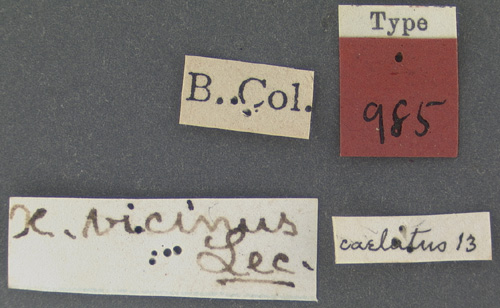 Type
985
B. Col.
x. vicinus
Lec.
caelatus 13